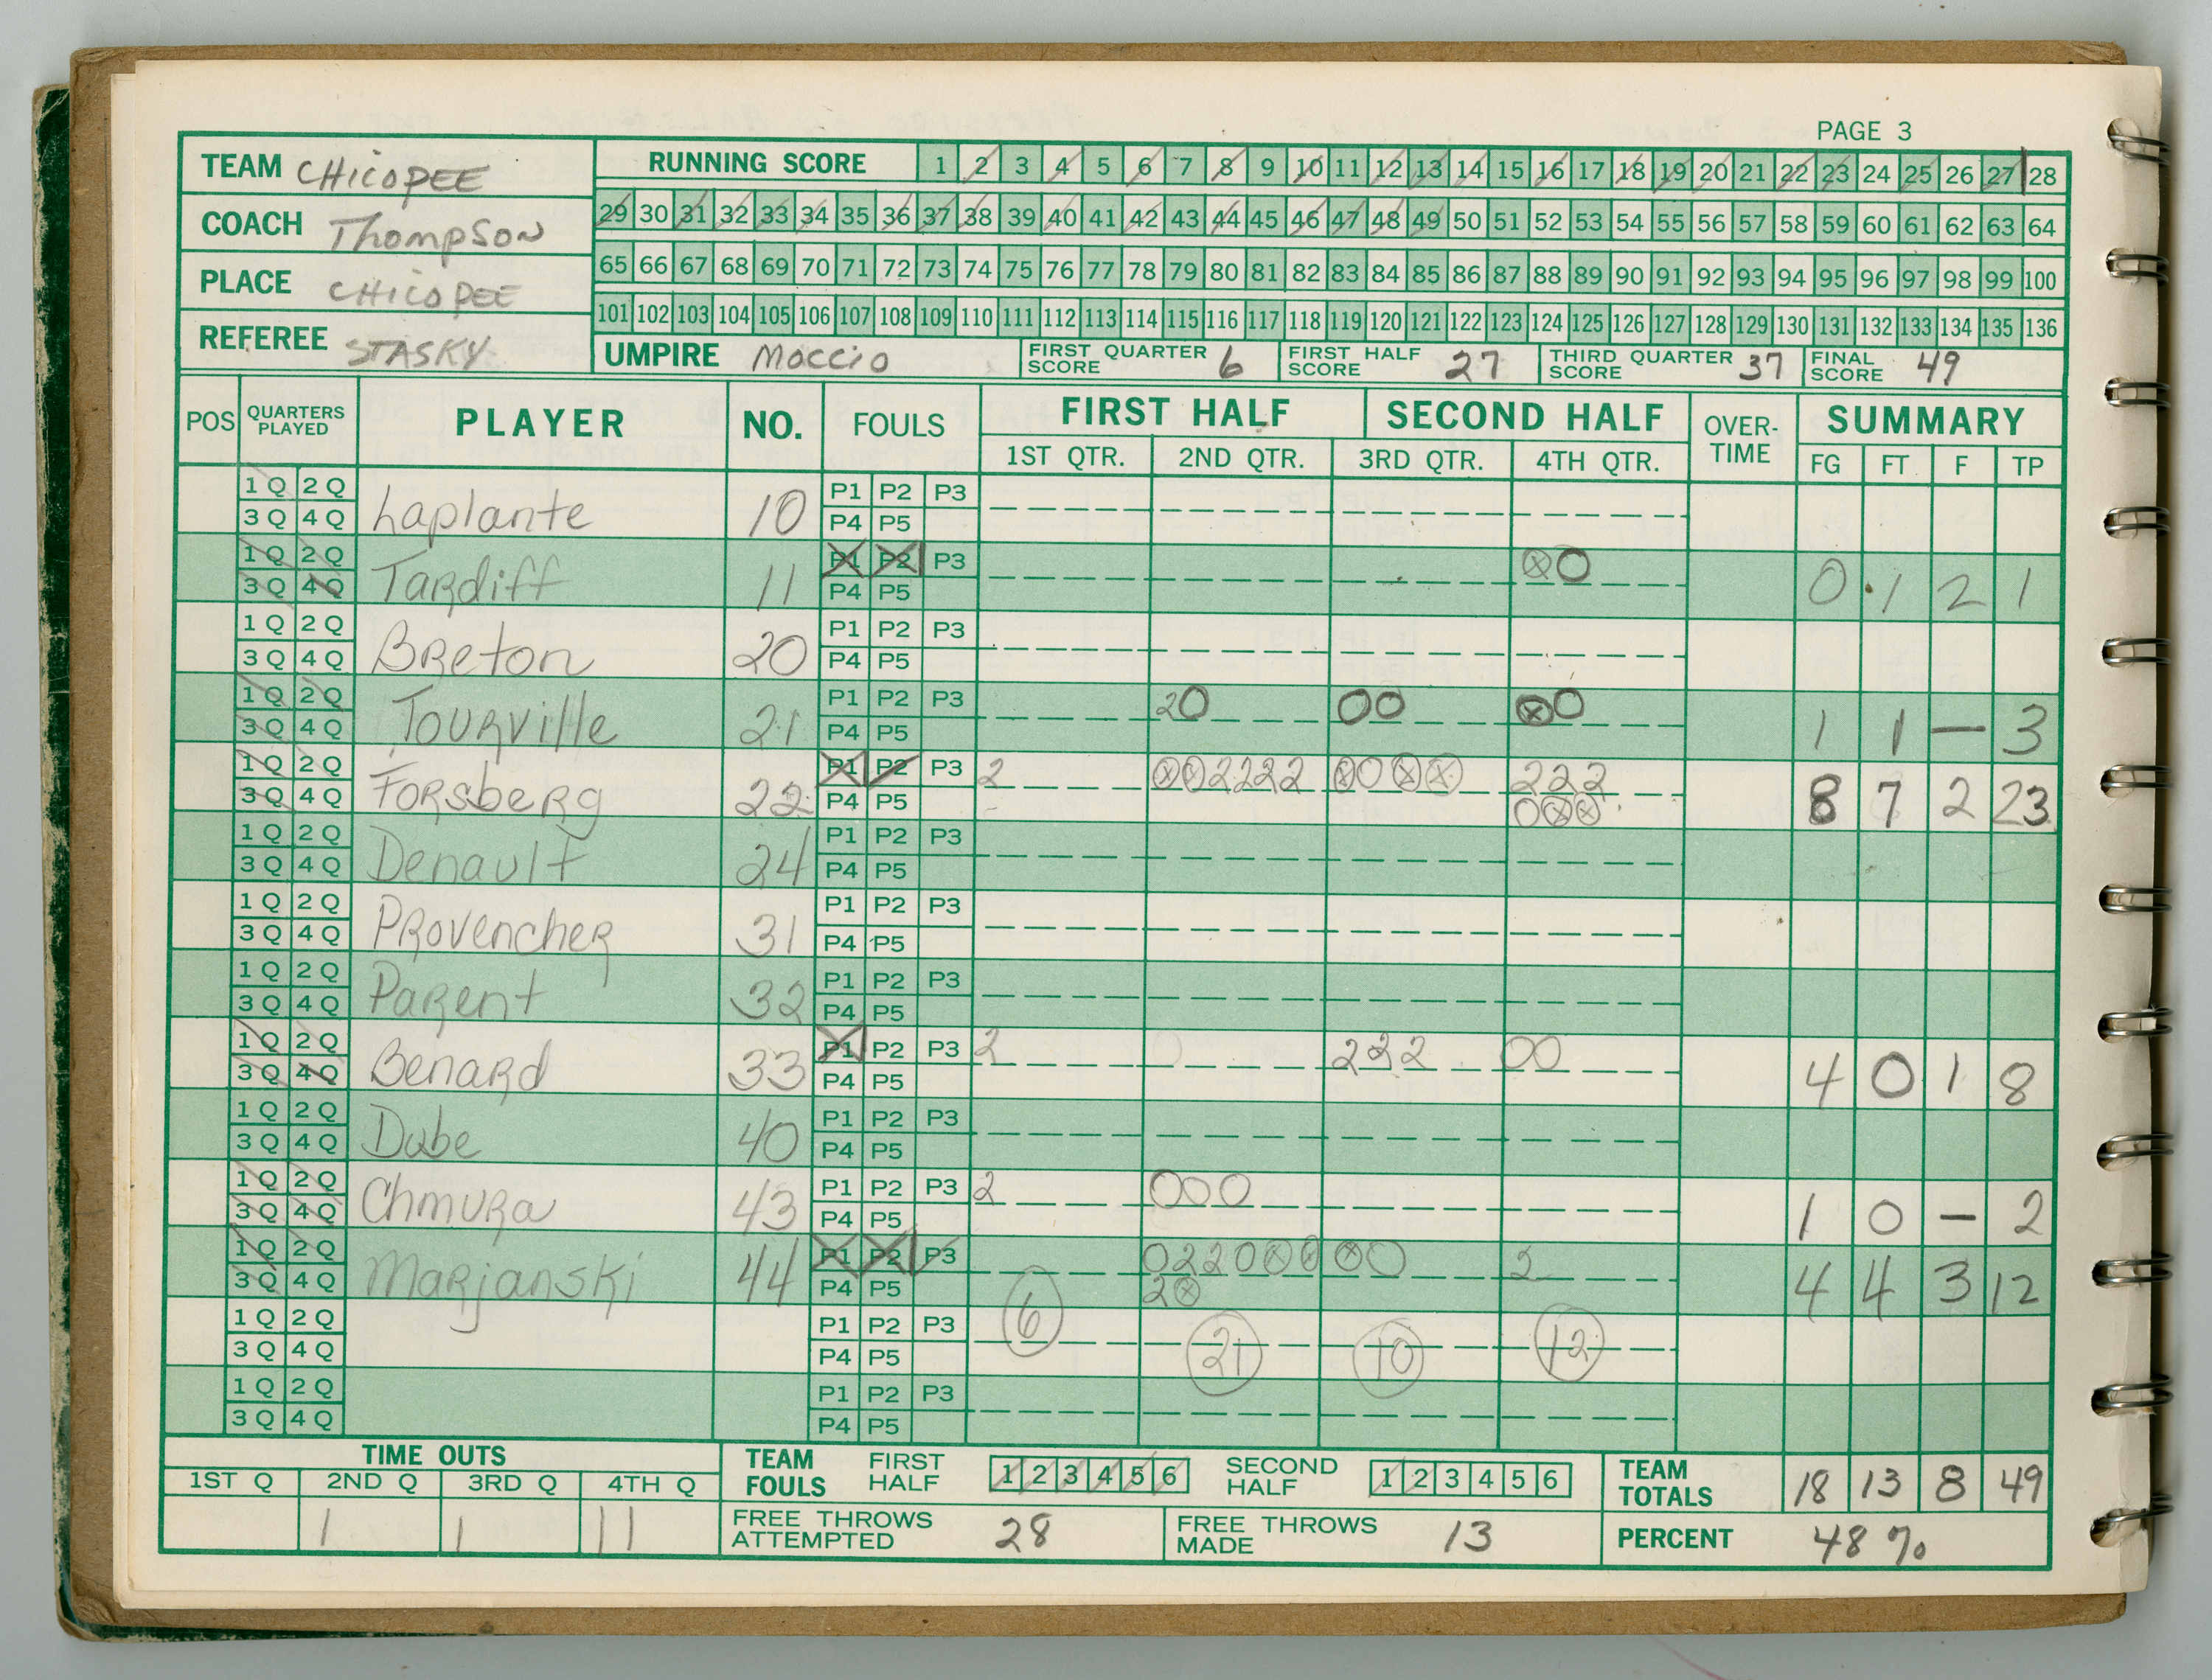 PAGE 3
TEAM CHICOPEE
RUNNING SCORE 1 2 3 4 5 6 7 8 9 10 11 12 13 14 15 16 17 18 19 20 21 22 23 24 25 26 27 28
COACH Thompson
29 30 31 32 33 34 35 36 37 38 39 40 41 42 43 44 45 46 47 48 49 50 51 52 53 54 55 56 57 58 59 60 61 62 63 64
PLACE CHICOPEE
65 66 67 68 69 70 71 72 73 74 75 76 77 78 79 80 81 82 83 84 85 86 87 88 89 90 91 92 93 94 95 96 97 98 99 100
101 102 103 104 105 106 107 108 109 110 111 112 113 114 115 116 117 118 119 120 121 122 123 124 125 126 127 128 129 130 131 132 133 134 135 136
REFEREE STASKY
UMPIRE Moccio FIRST QUARTER SCORE 6 FIRST HALF SCORE 27 THIRD QUARTER SCORE 37 FINAL SCORE 49
POS QUARTERS PLAYED PLAYER NO. FOULS FIRST HALF SECOND HALF OVER-TIME SUMMARY
1ST QTR. 2ND QTR. 3RD QTR. 4TH QTR. FG FT F TP
1 Q 2 Q P1 P2 P3
3 Q 4 Q Laplante 10 P4 P5
1 Q 2 Q P1 P2 P3 ⊗ O
3 Q 4 Q Tardiff 11 P4 P5 0 1 2 1
1 Q 2 Q P1 P2 P3
3 Q 4 Q Breton 20 P4 P5
1 Q 2 Q P1 P2 P3 2 O O O ⊗ O
3 Q 4 Q Tourville 21 P4 P5 1 1 — 3
1 Q 2 Q P1 P2 P3 2 ⊗ ⊗ 2 2 2 2 ⊗ O ⊗ ⊗ 2 2 2
3 Q 4 Q Forsberg 22 P4 P5 O ⊗ ⊗ 8 7 2 23
1 Q 2 Q P1 P2 P3
3 Q 4 Q Denault 24 P4 P5
1 Q 2 Q P1 P2 P3
3 Q 4 Q Provencher 31 P4 P5
1 Q 2 Q P1 P2 P3
3 Q 4 Q Parent 32 P4 P5
1 Q 2 Q P1 P2 P3 2 O 2 2 2 O O
3 Q 4 Q Benard 33 P4 P5 4 0 1 8
1 Q 2 Q P1 P2 P3
3 Q 4 Q Dube 40 P4 P5
1 Q 2 Q P1 P2 P3 2 O O O
3 Q 4 Q Chmura 43 P4 P5 1 0 — 2
1 Q 2 Q P1 P2 P3 O 2 2 O ⊗ ⊗ ⊗ O 2
3 Q 4 Q Marjanski 44 P4 P5 2 ⊗ 4 4 3 12
1 Q 2 Q P1 P2 P3 6 21 10 12
3 Q 4 Q P4 P5
1 Q 2 Q P1 P2 P3
3 Q 4 Q P4 P5
TIME OUTS TEAM FOULS FIRST HALF 1 2 3 4 5 6 SECOND HALF 1 2 3 4 5 6 TEAM TOTALS 18 13 8 49
1ST Q 2ND Q 3RD Q 4TH Q
1 1 11 FREE THROWS ATTEMPTED 28 FREE THROWS MADE 13 PERCENT 48 %